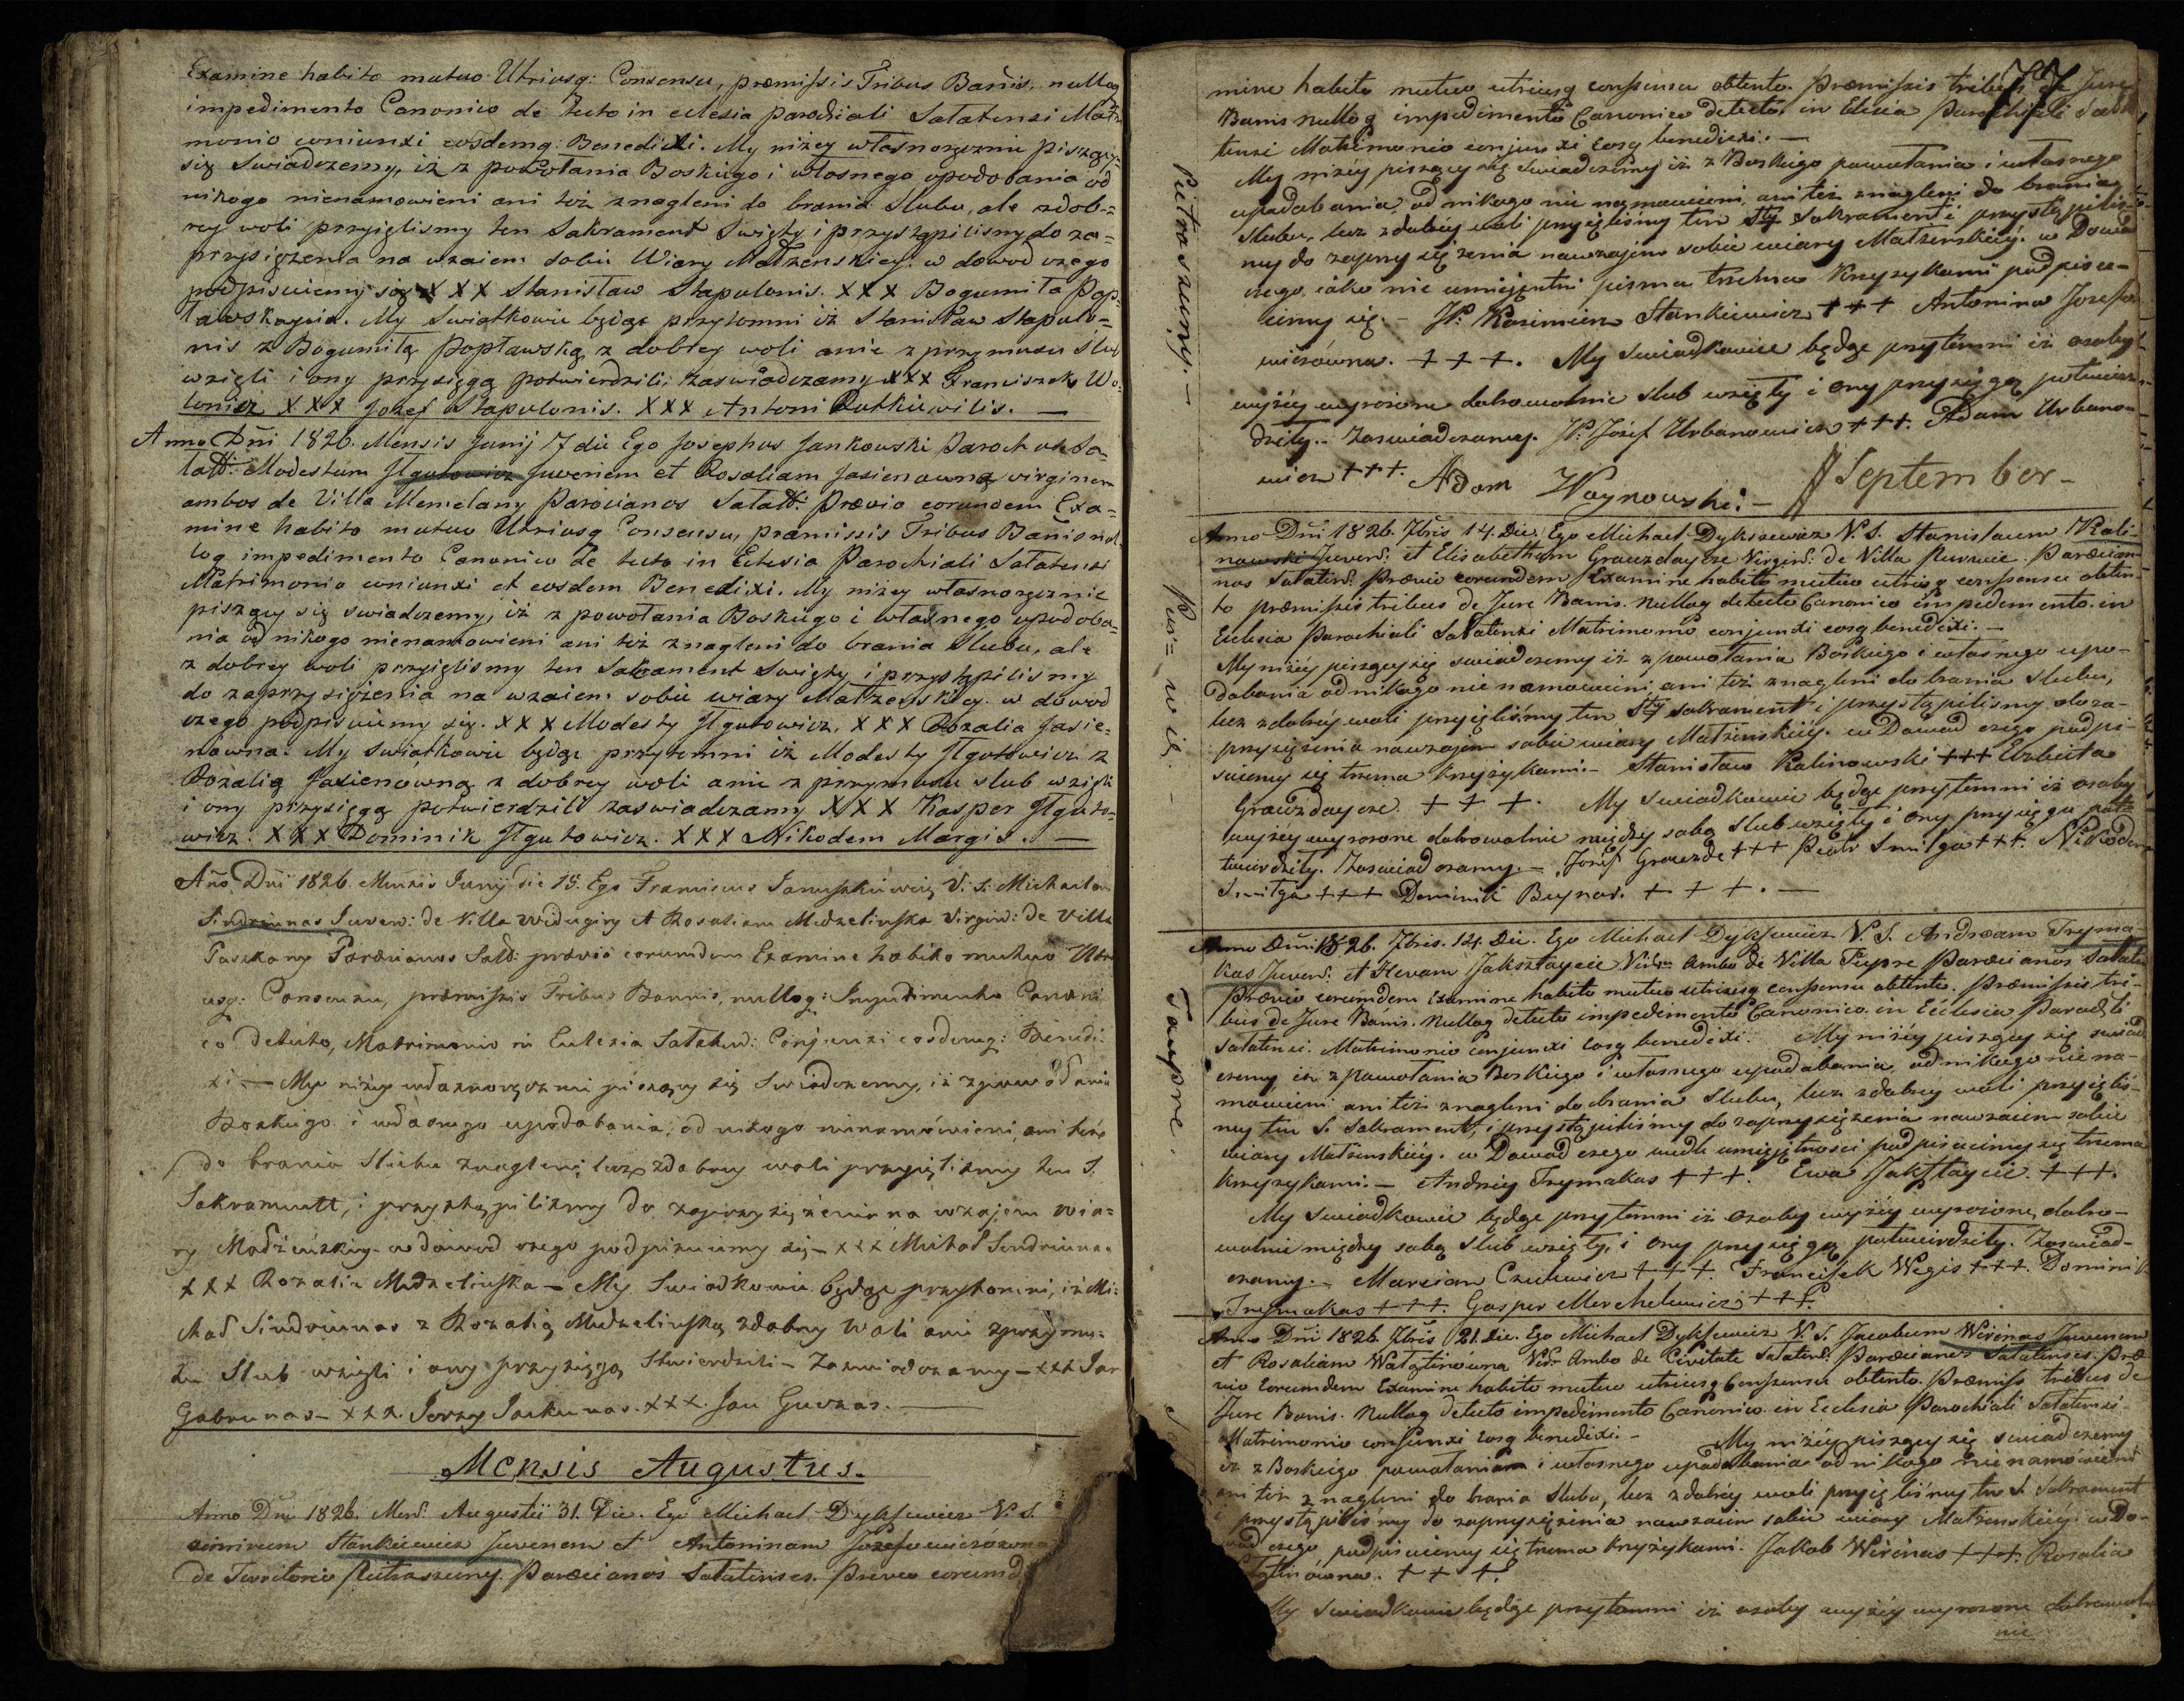 Examine habito mutuo Utriusq: Consensu, præmissis Tribus Banis, nulloq
impedimento Canonico de tecto in eclesia parochiali Salatensi Matri
monio coniunxi eosdemq: Benedixi. My niżey własnoręcznie piszący
się Swiadczemy, iż z powołania Boskiego i własnego upodobania od
nikogo nienamowieni ani też znagleni do brania Slubu, ale z dob-
rey woli przyięlismy ten Sakrament Swięty i przystąpilismy do za-
przysiężenia na wzaiem sobie Wiary Małżenskiey. w dowod czego
podpisuiemy się XXX Stanisław Stapulonis. XXX Bogumiła Pop-
ławskaycia. My Swiatkowie będąc przytomni iż Stanisław Stapulo-
nis z Bogumiłą Popławską z dobrey woli a nie z przymusu Slub
wzięli i ony przysięgą potwierdzili; zaswiadczamy XXX Franciszek Wo-
lonicz XXX Jozef Stapulonis. XXX Antoni Rutkiewilis. —
Anno Dni 1826. Mensis Junij 7 die Ego Josephus Jankowski Paroch us Sa-
latt: Modestum Jłgutowicz Juvenem et Rosaliam Jasienowną virginem
ambos de Villa Memelany Parocianos Salatt: Prævio eorundem Exa-
mine habito mutuo Utriusq Consensu, præmissis Tribus Banis nul-
loq impedimento Canonico De tecto in Eclesia Parochiali Salatensi
Matrimonio coniunxi et eosdem Benedixi. My niżey własnoręcznie
piszący się swiadczemy, iż z powołania Boskiego i własnego upodoba-
nia od nikogo nienamowieni ani też znagleni do brania Slubu, ale
z dobrey woli przyięlismy ten Sakrament Swięty i przystąpilismy
do zaprzysiężenia na wzaiem sobie wiary Małżenskiey. w dowod
czego podpisuiemy się. XXX Modesty Jłgutowicz, XXX Rozalia Jasie-
nowna. My swiatkowie będąc przytomni iż Modesty Jłgutowicz z
Rozalią Jasienowną z dobrey woli a nie z przymusu slub wzięli
i ony przysięgą potwierdzili zaswiadczamy XXX Kasper Jłguto-
wicz. XXX Dominik Jłgutowicz. XXX Nikodem Margis. —
Año Dni 1826 Mensis Junij die 15. Ego Franciscus Januszkiewicz V. S. Michaelem
Sindriunas Juven: de Villa Widugiry et Rosaliam Medzelinska Virgin: de Villa
Paszkany Paræcianos Salt: prævio eorumdem Examine habito mutuo Utri
usq: Consensu, præmissis Tribus Bannis, nulloq: Impedimento Canoni
co detecto, Matrimonio in Ecclesia Salaten: Conjunxi eosdemq: Benedi:
xi — My niżey własnoręcznie piszący się Swiadczemy, iż z powołania
Boskiego i własnego upodobania, od nikogo nienamówieni, ani też
do brania Slubu znagleni, lecz z dobrey woli przyięlismy ten S.
Sakrament, i przystąpilismy do zaprzysiężenia na wzajem wia-
ry Małżeńskiey w dowod czego podpisuiemy się — XXX Michał Sindriunas
XXX Rozalia Medzelinska — My Swiadkowie będąc przytomni, iż Mi:
chał Sindriunas z Rozalią Medzelinską z dobrey woli a nie z przymu:
zu Slub wzięli i ony przysięgą Stwierdzili — Zaswiadczamy — XXX Jan
Gabrunas — XXX Jerzy Jackunas. XXX. Jan Guczas. —
Mensis Augustus.
Anno Dni 1826. Mens. Augustii 31. Die. Ego Michael Dyksewicz V. S.
simirum Stankiewicz Juvenem et Antoninam Jozefowiczówna
de Territorio Pietraszuny. Paræcianos Salatenses. Prævio eorumd
mine habito mutuo utriusq consensu obtento. Præmissis tribus de Jure
Banis nulloq impedimento Canonico detecto. in Eclesia Parochiali Sala
tensi Matrimonio conjunxi eosq benedixi. —
My niżéy piszący się swiadczemy iż z Boskiego powołania i własnego
upodobania, od nikogo nie namowieni ani też znagleni do brania
Slubu, lecz z dobréy woli przyięliśmy ten Sty Sakrament i przystąpiliś-
my do zaprzysiężenia nawzajem sobie wiary Małżenskiéy. w Dowod
czego iako nie umiejętni pisma trzema Krzyzykami podpisu-
iemy się. — JP: Kazimierz Stankiewicz +++ Antonina Jozefo
wiczówna. +++. My Swiadkowie będąc przytemni iż osoby
wyżéy wyrożone dobrowolnie slub wzięły i ony przysięgą potwier-
dziły. Zaswiadczamy. JP: Józef Urbanowicz +++. Adam Urbano-
wicz +++. Adam Woynowski. —
September —
Anno Dni 1826. 7bris 14. Die. Ego Michael Dyksewicz V. S. Stanislaum Kali-
nowski Juven. et Elisabetham Grauzdaycze Virgin. de Villa Purwie. Paræcia-
nos Salaten. Prævio eorumdem Examine habito mutuo utriusq consensu obten-
to præmissis tribus de Jure Banis. Nulloq detecto Canonico impedemento. in
Eclesia Parochiali Salatensi Matrimonio conjunxi eosq benedixi. —
My niżéy piszący się swiadczemy iż z powołania Boskiego i własnego upo-
dobania od nikogo nie namowieni ani też znagleni do brania slubu,
lecz z dobréy woli przyięliśmy ten Sty sakrament i przystąpilismy do za-
przysiężenia nawzajem sobie wiary Małżenskiéy. w Dowod czego podpi-
suiemy się trzema krzyżykami. — Stanisław Kalinowski +++ Elzbieta
Grauzdaycze. +++. My Swiadkowie będąc przytemni iż osoby
wyżey wyrożone dobrowolnie między sobą Slub wzięły i ony przysięgą potz
twierdziły. Zaswiadczamy. — Józef Grauzde +++ Piotr Smilga +++. Nikodem
Smilga +++ Dominik Buynos. +++. —
Anno Dni 1826. 7bris. 14. Die. Ego Michael Dyksewicz V. S. Andræam Tryma-
kas Juven. et Hevam Jaksztaycie Virgin. Ambo de Villa Taupre Paræcianos Salaten
Prævio eorumdem Examine habito mutuo utriusq consensu obtento. Præmissis tri-
bus de Jure Banis. Nulloq detecto impedemento Canonico. in Ecclesia Paroch:li
Salatensi. Matrimonio conjunxi eosq benedixi. My niżéy piszący się swiad
czemy iż z powołania Boskiego i własnego upodobania, od nikogo nie na-
mowieni ani też znagleni do brania Slubu, lecz z dobréy woli przyięliś-
my ten S. Sakrament, i przystąpiliśmy do zaprzysiężenia nawzaiem sobie
wiary Małżenskiéy. w Dowod czego wedle umiejętnosci podpisuiemy się trzema
krzyzykami. — Andrzéy Trymakas +++. Ewa Jaksztaycie. +++.
My Swiadkowie będąc przytemni iż Osoby wyżéy wyrożone, dobro-
wolnie między sobą Slub wzięły, i ony przysięgą potwierdziły. Zaswiad-
czamy. — Marcian Czulewicz +++. Franciszek Wegis +++. Dominik
Trymakas +++. Gasper Merchelewicz +++.
Anno Dni 1826. 7bris 21. Die. Ego Michael Dyksewicz V. S. Jacobum Wirinas Juvenem
et Rosaliam Walątinówna Vir. Ambo de Civitate Salaten. Paræcianos Salatenses. Præ
vio Eorumdem Examine habito mutuo utriusq Consensu obtento. Præmiss tribus de
Jure Banis. Nulloq detecto impedimento Canonico. in Ecclesia Parochiali Salatensi
Matrimonio conjunxi eosq benedixi. — My niżéy piszący się swiadczemy
iż z Boskiego powołania i własnego upodobania od nikogo nie namówieni
ani też znagleni do brania Slubu, lecz z dobréy woli przyięliśmy ten S. Sakrament
i przystąpiliśmy do zaprzysiężenia nawzaiem sobie wiary Małżenskiéy. w Do-
wod czego podpisuiemy się trzema Krzyzykami. Jakob Wirinas +++. Rosalia
ątinówna. +++.
My Swiadkowie będąc przytomni iż osoby wyżéy wyrozone dobrowol
nie
Pietraszuny. —
Pur= wie. —
Taupre.